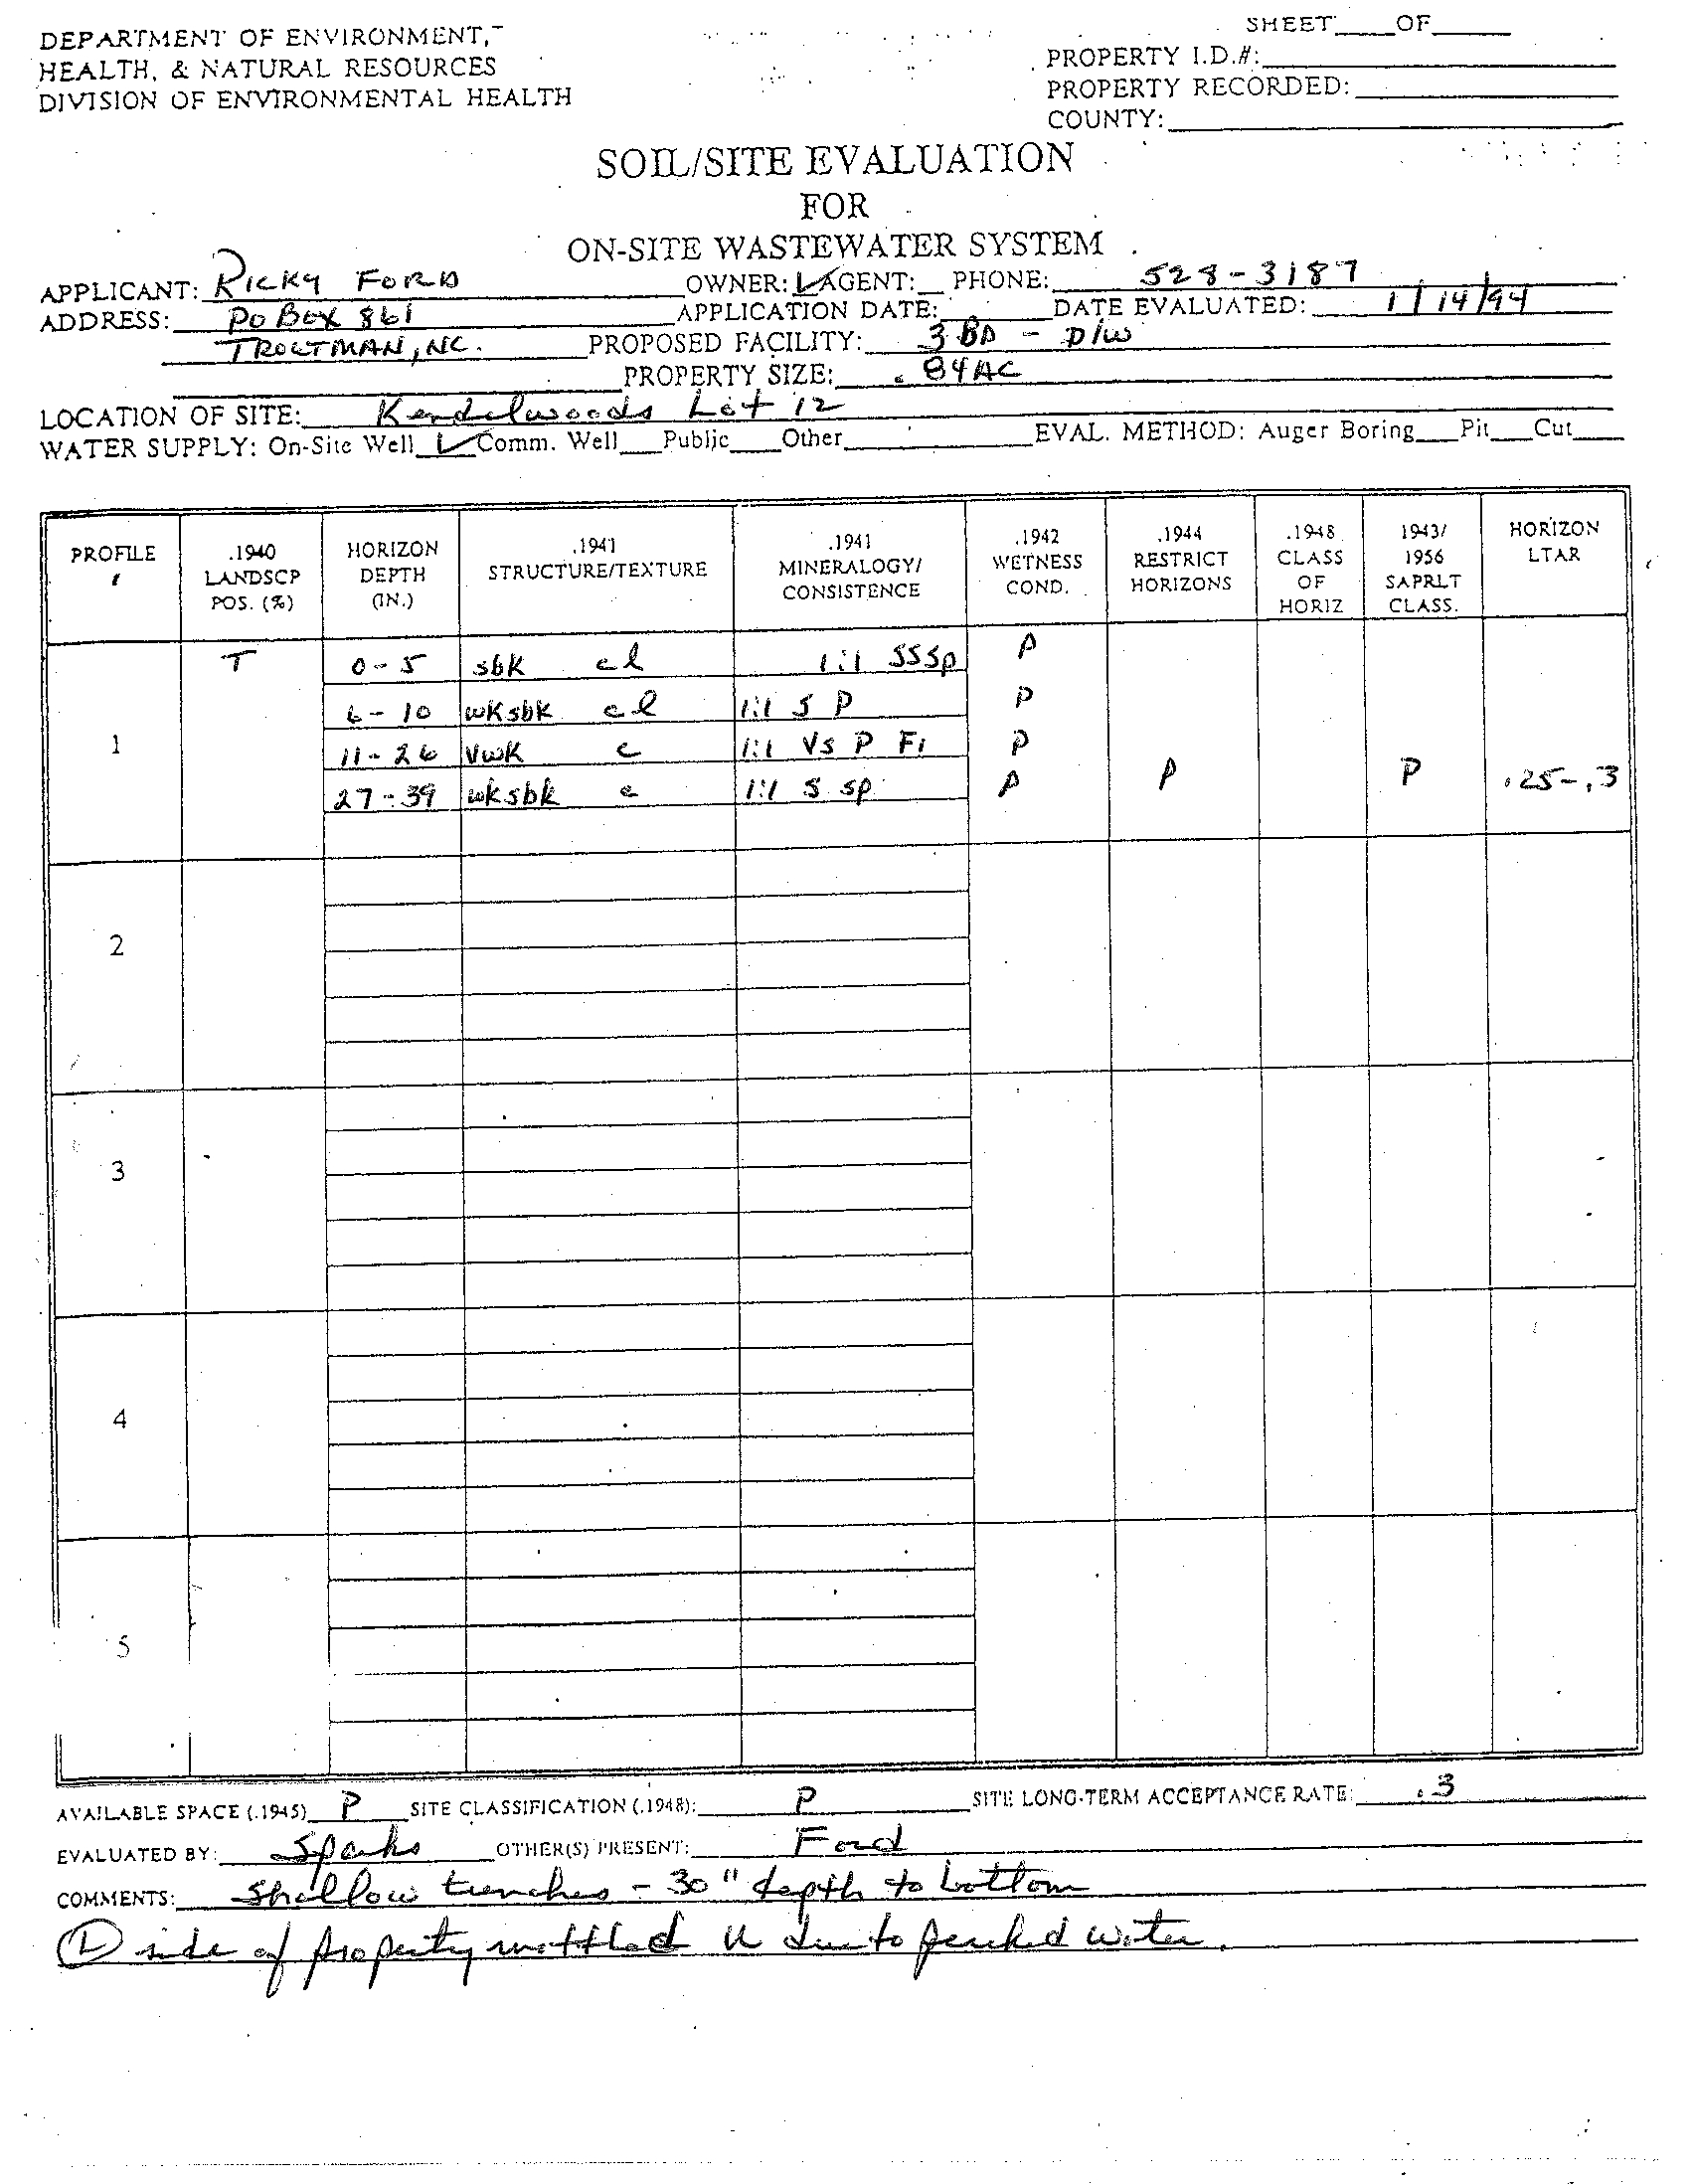 SHEET____OF____
DEPARTMENT OF ENVIRONMENT,
HEALTH, & NATURAL RESOURCES
DIVISION OF ENVIRONMENTAL HEALTH
PROPERTY I.D.#:
PROPERTY RECORDED:
COUNTY:
SOIL/SITE EVALUATION
FOR
ON-SITE WASTEWATER SYSTEM
APPLICANT: RICKY FORD OWNER: ✓ AGENT:__ PHONE: 528-3187
ADDRESS: PO BOX 861 APPLICATION DATE:____ DATE EVALUATED: 1/14/94
TROUTMAN, NC. PROPOSED FACILITY: 3 BD - D/W
PROPERTY SIZE: .84AC
LOCATION OF SITE: Kendelwoods Lot 12
WATER SUPPLY: On-Site Well ✓ Comm. Well___ Public___ Other____ EVAL. METHOD: Auger Boring___ Pit___ Cut___
PROFILE # .1940 LANDSCP POS. (%) HORIZON DEPTH (IN.) .1941 STRUCTURE/TEXTURE .1941 MINERALOGY/ CONSISTENCE .1942 WETNESS COND. .1944 RESTRICT HORIZONS .1948 CLASS OF HORIZ 1943/ 1956 SAPRLT CLASS. HORIZON LTAR
T 0-5 sbk cl 1:1 SSSp P
6-10 wksbk cl 1:1 S P P
1 11-26 Vwk c 1:1 Vs P Fi P
27-39 wksbk c 1:1 S sp P P P .25-.3
2
3
4
5
AVAILABLE SPACE (.1945) P SITE CLASSIFICATION (.1948): P SITE LONG-TERM ACCEPTANCE RATE: .3
EVALUATED BY: Sparks OTHER(S) PRESENT: Ford
COMMENTS: Shallow trenches - 30" depth to bottom
(L) side of property mottled U due to perched water.